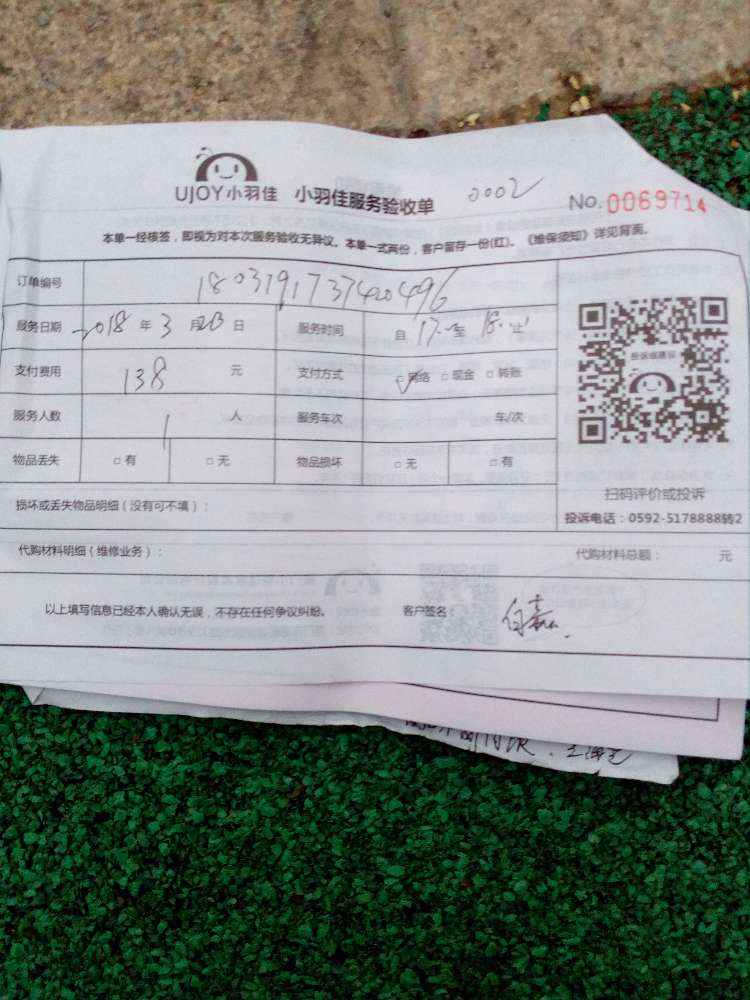 UJOY小羽佳 小羽佳服务验收单 0002 No.0069714
本单一经核签，即视为对本次服务验收无异议。本单一式两份，客户留存一份(红)。《维保须知》详见背面。
订单编号 180319173740496
服务日期 2018 年 3 月 20 日 服务时间 自 17:00 至 18:00 止
支付费用 138 元 支付方式 □网络 □现金 □转账
投诉或建议
服务人数 1 人 服务车次 车/次
物品丢失 □有 □无 物品损坏 □无 □有
扫码评价或投诉
损坏或丢失物品明细（没有可不填）：
投诉电话：0592-5178888转2
代购材料明细（维修业务）： 代购材料总额： 元
以上填写信息已经本人确认无误，不存在任何争议纠纷。 客户签名：